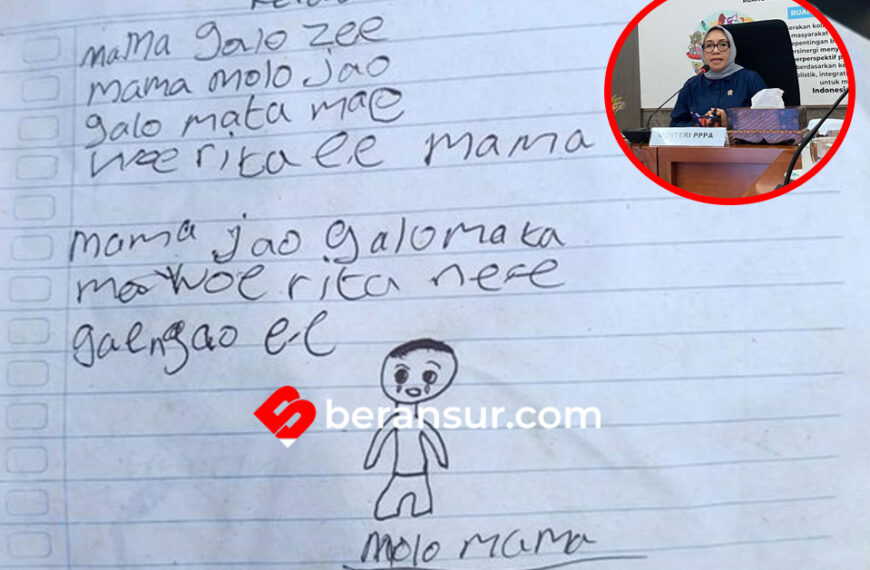 mama galo zee
mama molo jao
galo mata mae
woe rita ee mama
mama jao galo mata
mae woe rita nee
gaengao ee
molo mama
beransur.com
MENTERI PPPA
RUAN
erakan kol
masyarakat
epentingan b
ersinergi meny
erperspektif p
berdasarkan ke
olistik, integrat
untuk m
Indonesi